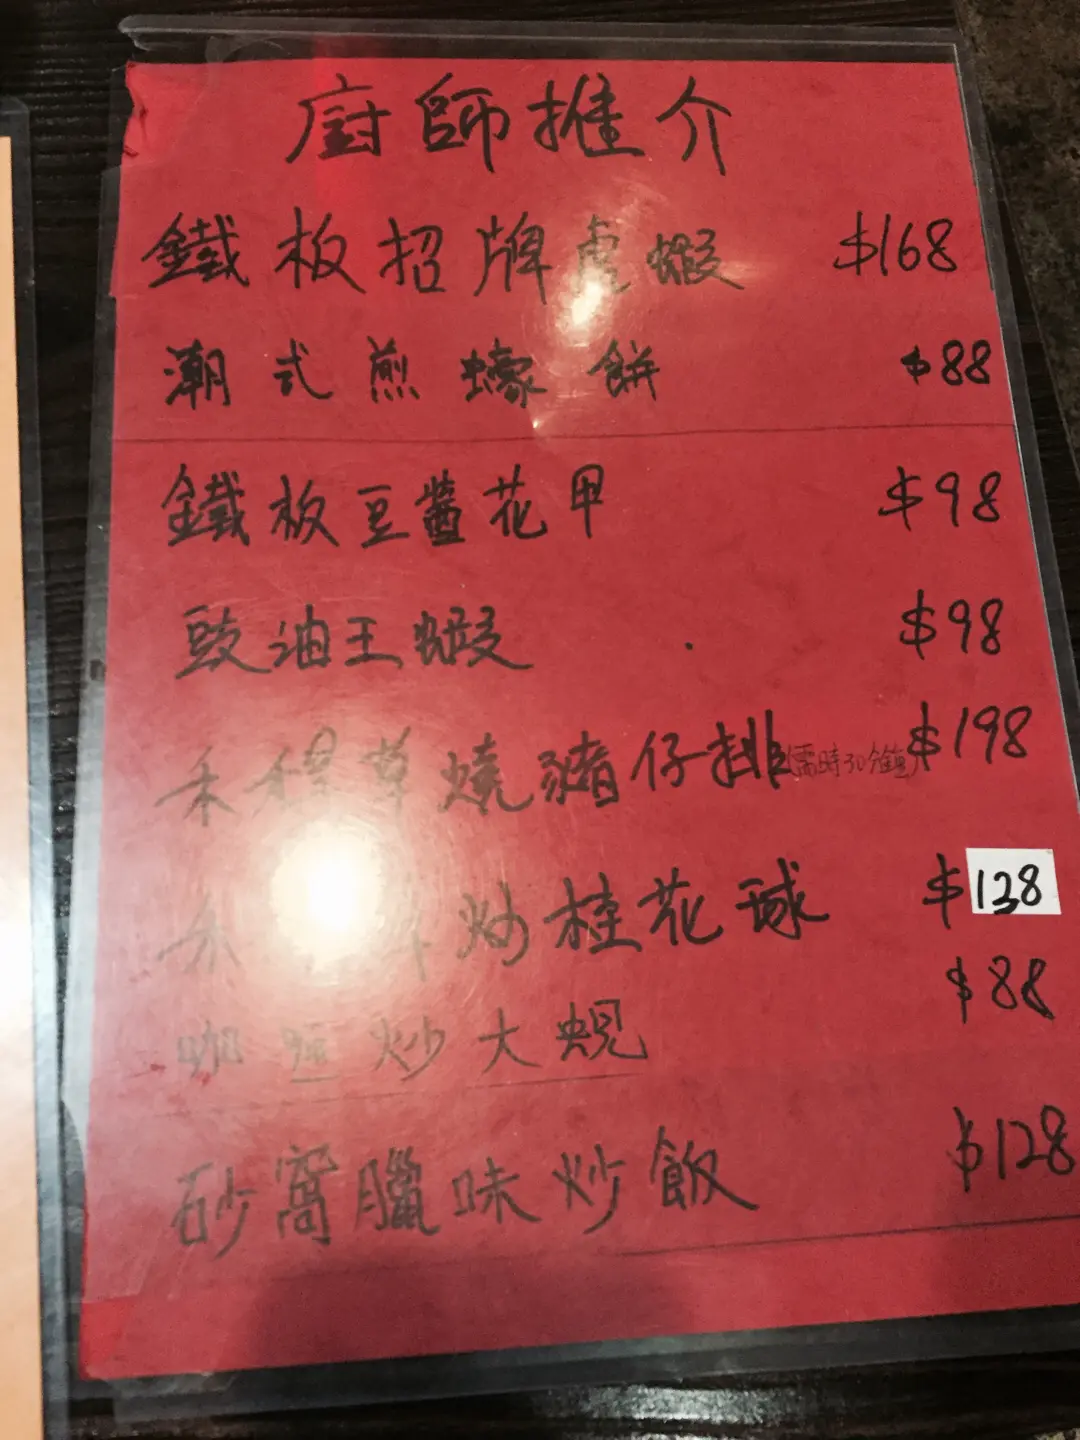 廚師推介
鐵板招牌虎蝦 $168
潮式煎蠔餅 $88
鐵板豆醬花甲 $98
豉油王蝦 $98
禾稈草燒豬仔排(需時30分鐘) $198
禾 草炒桂花球 $138
咖喱炒大蜆 $88
砂窩臘味炒飯 $128